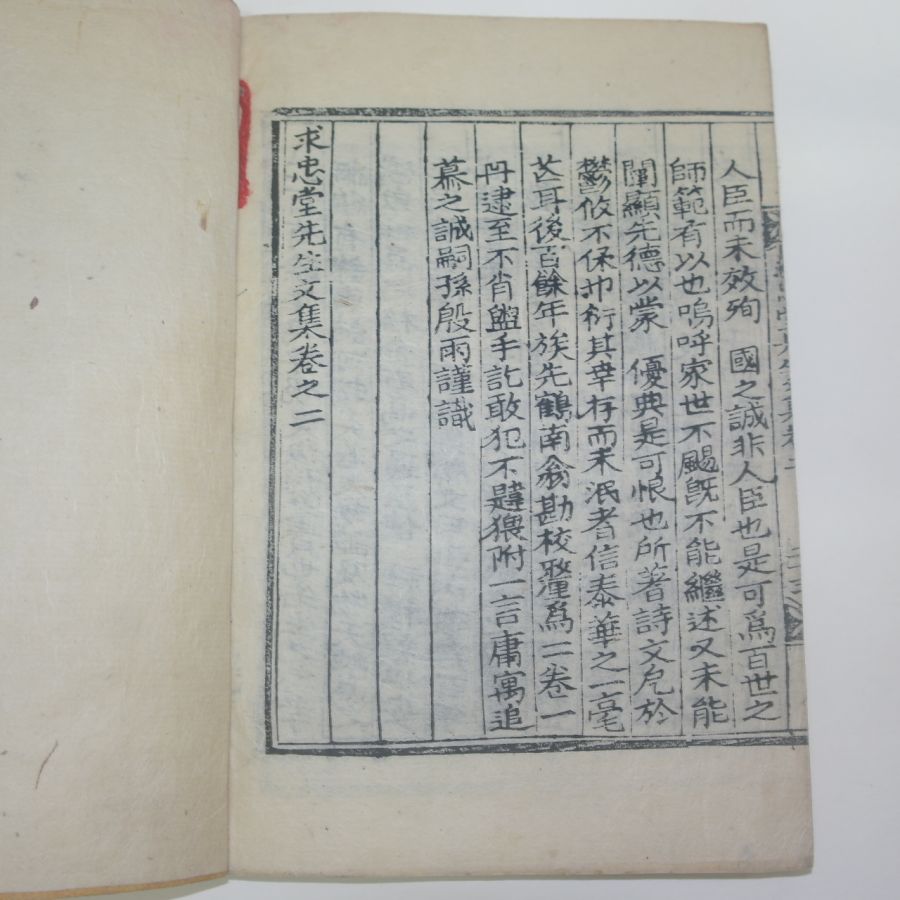 人臣而未效殉　國之誠非人臣也是可爲百世之
師範有以也嗚呼家世不颺旣不能繼述又未能
闡顯先德以蒙　優典是可恨也所著詩文厄於
鬱攸不保巾衍其幸存而未泯者信泰華之一毫
芒耳後百餘年族先鶴南翁勘校釐爲二卷一
冊逮至不肖盥手訖敢犯不韙猥附一言庸寓追
慕之誠嗣孫殷雨謹識
求忠堂先生文集卷之二